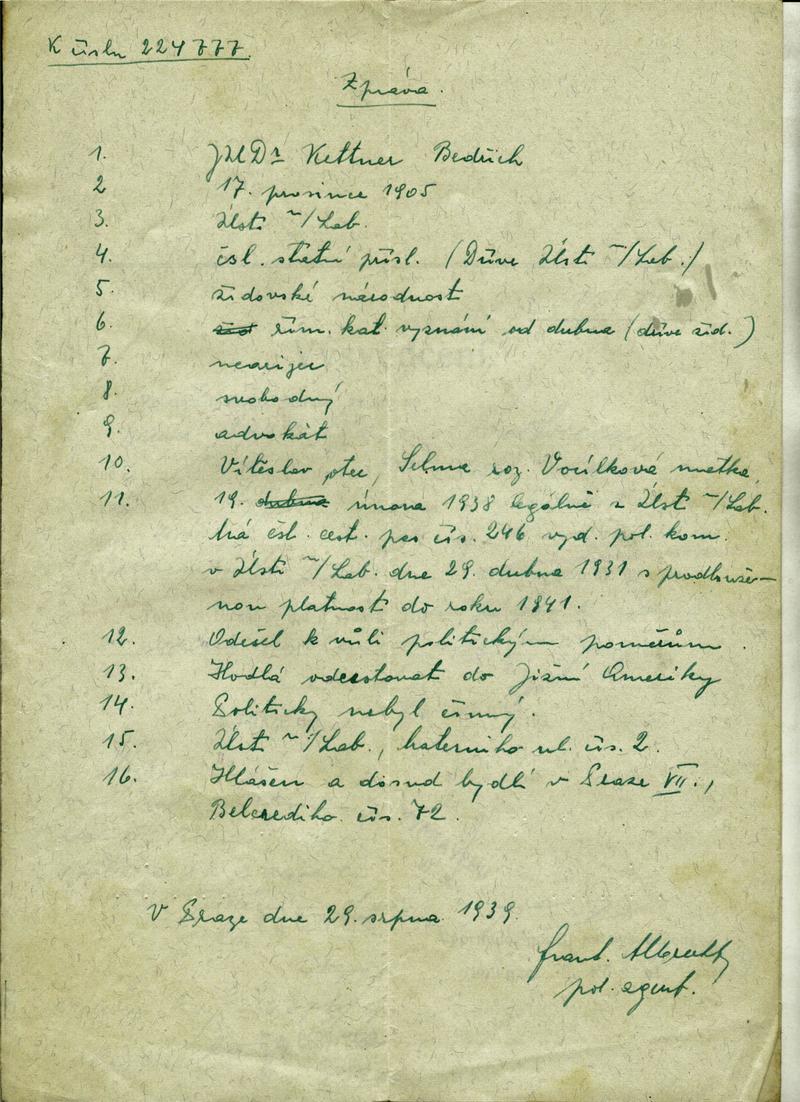 K číslu 224777.
Zpráva.
1. JUDr Kettner Bedřich
2 17. prosince 1905
3. Ústí n/Lab.
4. čsl. státní přísl. (Dříve Ústí n/Lab.)
5. židovské národnosti
6. žid řím. kat. vyznání od dubna (dříve žid.)
7. nearijec
8. svobodný
9. advokát
10. Vítěslav otec, Selma roz. matka
11. 19. dubna února 1938 legálně z Ústí n/Lab.
Má čsl. cest. pas čís. 246 vyd. pol. kom.
v Ústí n/Lab. dne 29. dubna 1931 s prodlouže-
nou platností do roku 1941.
12. Odešel k vůli politickým poměrům.
13. Hodlá odcestovat do Jižní Ameriky
14. Politicky nebyl činný.
15. Ústí n/Lab., ul. čís. 2.
16. Hlášen a dosud bydlí v Praze VII.,
Belcrediho čís. 72.
V Praze dne 29. srpna 1939.
Frant.
pol. agent.